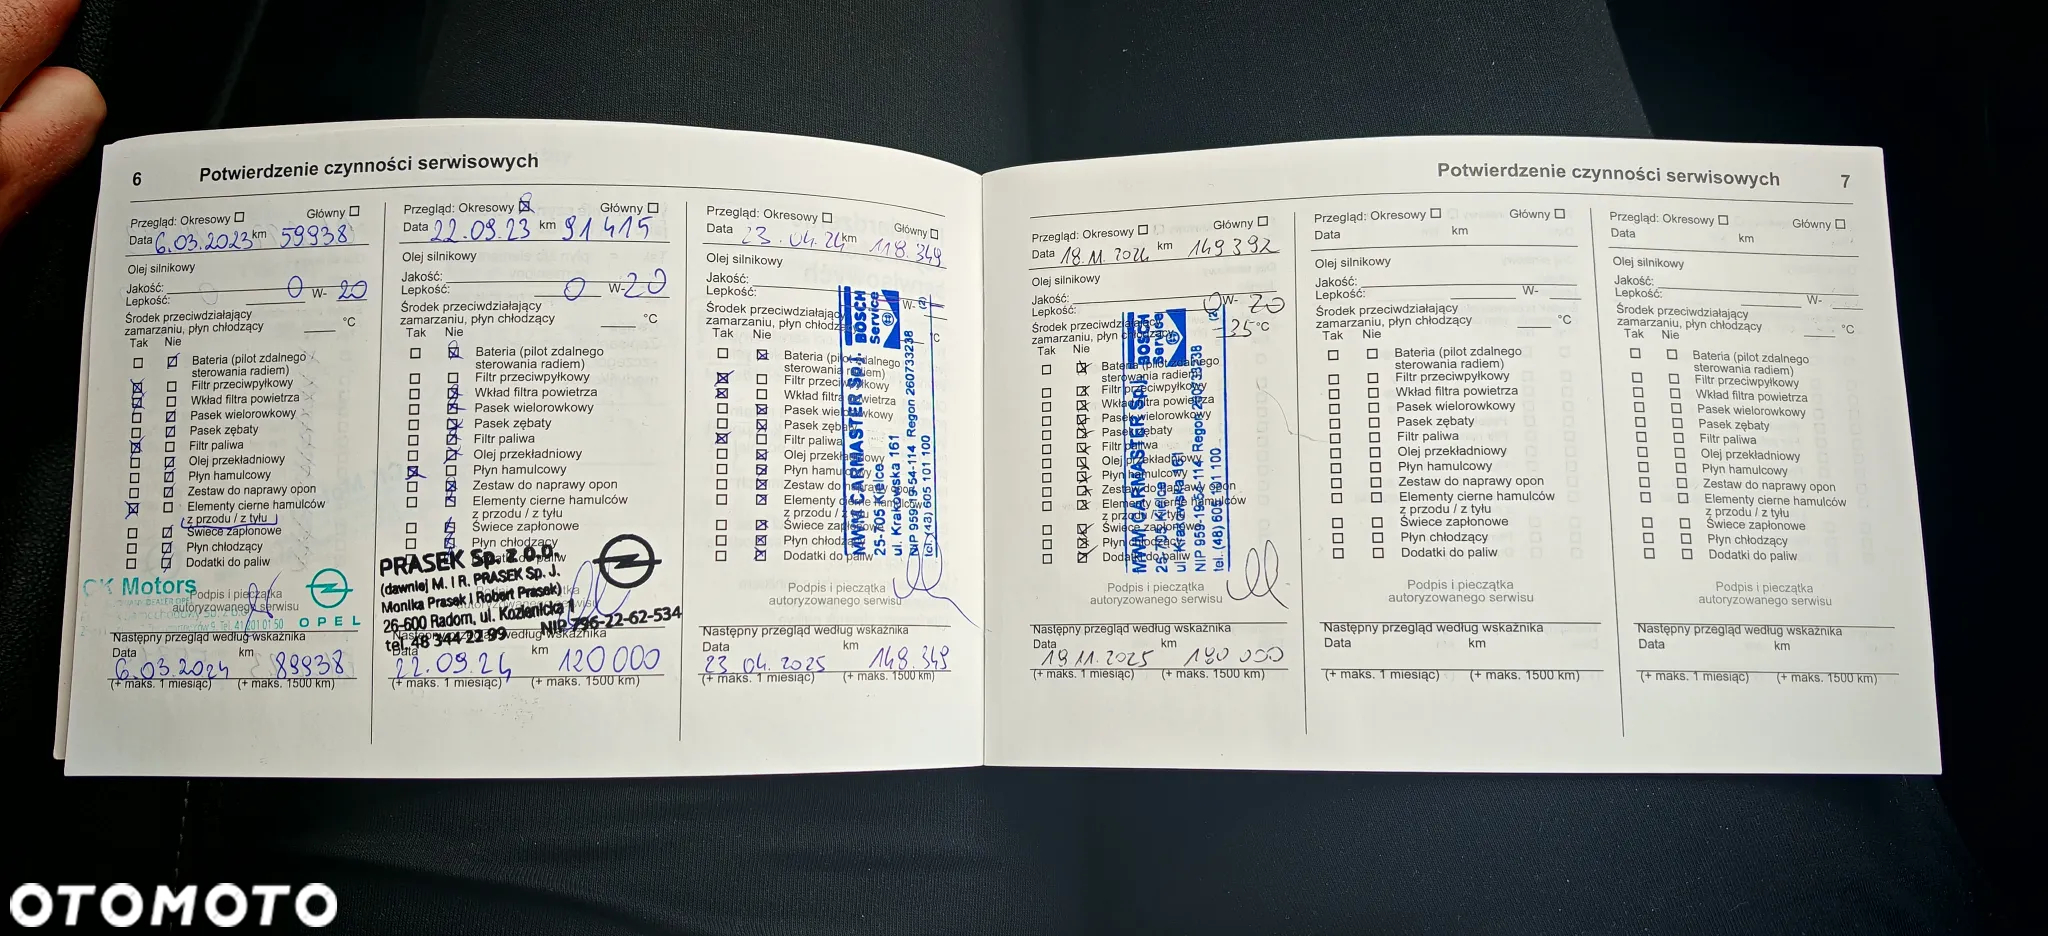 6 Potwierdzenie czynności serwisowych
Przegląd: Okresowy Główny
Data 6.03.2023 km 59938
Olej silnikowy
Jakość:
Lepkość: 0 W- 20
Środek przeciwdziałający
zamarzaniu, płyn chłodzący °C
Tak Nie
Bateria (pilot zdalnego
sterowania radiem)
Filtr przeciwpyłkowy
Wkład filtra powietrza
Pasek wielorowkowy
Pasek zębaty
Filtr paliwa
Olej przekładniowy
Płyn hamulcowy
Zestaw do naprawy opon
Elementy cierne hamulców
z przodu / z tyłu
Świece zapłonowe
Płyn chłodzący
Dodatki do paliw
Motors
OPEL
Podpis i pieczątka
autoryzowanego serwisu
Następny przegląd według wskaźnika
Data km
6.03.2024 89938
(+ maks. 1 miesiąc) (+ maks. 1500 km)
Przegląd: Okresowy Główny
Data 22.09.23 km 91415
Olej silnikowy
Jakość:
Lepkość: 0 W- 20
Środek przeciwdziałający
zamarzaniu, płyn chłodzący °C
Tak Nie
Bateria (pilot zdalnego
sterowania radiem)
Filtr przeciwpyłkowy
Wkład filtra powietrza
Pasek wielorowkowy
Pasek zębaty
Filtr paliwa
Olej przekładniowy
Płyn hamulcowy
Zestaw do naprawy opon
Elementy cierne hamulców
z przodu / z tyłu
Świece zapłonowe
PRASEK Sp. z o.o.
(dawniej M. i R. PRASEK Sp. J.
Monika Prasek i Robert Prasek)
26-600 Radom, ul. Kozienicka 1
tel. 48 344 22 99 NIP 796-22-62-534
Data km
22.09.24 120000
(+ maks. 1 miesiąc) (+ maks. 1500 km)
Przegląd: Okresowy Główny
Data 23.04.24 km 118.349
Olej silnikowy
Jakość:
Lepkość: W-
Środek przeciwdziałający
zamarzaniu, płyn chłodzący °C
Tak Nie
Bateria (pilot zdalnego
sterowania radiem)
Filtr przeciwpyłkowy
Wkład filtra powietrza
Pasek wielorowkowy
Pasek zębaty
Filtr paliwa
Olej przekładniowy
Płyn hamulcowy
Zestaw do naprawy opon
Elementy cierne hamulców
z przodu / z tyłu
Świece zapłonowe
Płyn chłodzący
Dodatki do paliw
MWM CARMASTER Sp.j. BOSCH
Service
25-705 Kielce
ul. Krakowska 161
NIP 959-19-54-114 Regon 260733238
tel. (48) 605 101 100 (2)
Podpis i pieczątka
autoryzowanego serwisu
Następny przegląd według wskaźnika
Data km
23 04.2025 148.349
(+ maks. 1 miesiąc) (+ maks. 1500 km)
Potwierdzenie czynności serwisowych 7
Przegląd: Okresowy Główny
Data 18.11.2024 km 149392
Olej silnikowy
Jakość:
Lepkość: 0 W- 20
Środek przeciwdziałający
zamarzaniu, płyn chłodzący -25 °C
Tak Nie
Bateria (pilot zdalnego
sterowania radiem)
Filtr przeciwpyłkowy
Wkład filtra powietrza
Pasek wielorowkowy
Pasek zębaty
Filtr paliwa
Olej przekładniowy
Płyn hamulcowy
Zestaw do naprawy opon
Elementy cierne hamulców
z przodu / z tyłu
Świece zapłonowe
Płyn chłodzący
Dodatki do paliw
MWM CARMASTER Sp.j. BOSCH
Service
25-705 Kielce
ul. Krakowska 161
NIP 959-19-54-114 Regon 260733238
tel. (48) 605 101 100 (2)
Podpis i pieczątka
autoryzowanego serwisu
Następny przegląd według wskaźnika
Data km
19 11.2025 180 000
(+ maks. 1 miesiąc) (+ maks. 1500 km)
Przegląd: Okresowy Główny
Data km
Olej silnikowy
Jakość:
Lepkość: W-
Środek przeciwdziałający
zamarzaniu, płyn chłodzący °C
Tak Nie
Bateria (pilot zdalnego
sterowania radiem)
Filtr przeciwpyłkowy
Wkład filtra powietrza
Pasek wielorowkowy
Pasek zębaty
Filtr paliwa
Olej przekładniowy
Płyn hamulcowy
Zestaw do naprawy opon
Elementy cierne hamulców
z przodu / z tyłu
Świece zapłonowe
Płyn chłodzący
Dodatki do paliw
Podpis i pieczątka
autoryzowanego serwisu
Następny przegląd według wskaźnika
Data km
(+ maks. 1 miesiąc) (+ maks. 1500 km)
Przegląd: Okresowy Główny
Data km
Olej silnikowy
Jakość:
Lepkość: W-
Środek przeciwdziałający
zamarzaniu, płyn chłodzący °C
Tak Nie
Bateria (pilot zdalnego
sterowania radiem)
Filtr przeciwpyłkowy
Wkład filtra powietrza
Pasek wielorowkowy
Pasek zębaty
Filtr paliwa
Olej przekładniowy
Płyn hamulcowy
Zestaw do naprawy opon
Elementy cierne hamulców
z przodu / z tyłu
Świece zapłonowe
Płyn chłodzący
Dodatki do paliw
Podpis i pieczątka
autoryzowanego serwisu
Następny przegląd według wskaźnika
Data km
(+ maks. 1 miesiąc) (+ maks. 1500 km)
OTOMOTO